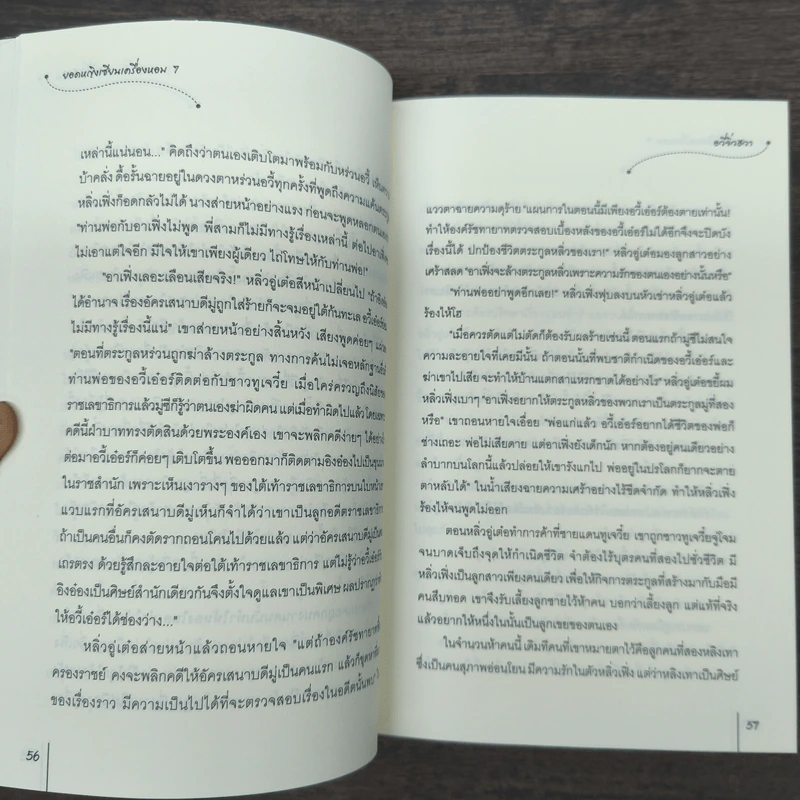 ยอดหญิงเซียนเครื่องหอม 7
เหล่านี้แน่นอน..." คิดถึงว่าตนเองเติบโตมาพร้อมกับหร่วนอวี้
บ้าคลั่ง ดื้อรั้นฉายอยู่ในดวงตาหร่วนอวี้ทุกครั้งที่พูดถึงความแค้น
หลิ่วเฟิ่งก็อดกลัวไม่ได้ นางส่ายหน้าอย่างแรง ก่อนจะพูดหลอกตนเอง
"ท่านพ่อกับอาเฟิ่งไม่พูด พี่สามก็ไม่มีทางรู้เรื่องเหล่านี้ ต่อไปอาเฟิ่ง
ไม่เอาแต่ใจอีก มีใจให้เขาเพียงผู้เดียว ไถ่โทษให้กับท่านพ่อ!"
"อาเฟิ่งเลอะเลือนเสียจริง!" หลิ่วอู่เต๋อสีหน้าเปลี่ยนไป
ได้อำนาจ เรื่องอัครเสนาบดีมู่ถูกใส่ร้ายก็จะจมอยู่ใต้ก้นทะเล
ไม่มีทางรู้เรื่องนี้แน่" เขาส่ายหน้าอย่างสิ้นหวัง เสียงพูดค่อยๆ
"ตอนที่ตระกูลหร่วนถูกฆ่าล้างตระกูล ทางการค้นไม่เจอหลักฐาน
ท่านพ่อของอวี้เอ๋อร์ติดต่อกับชาวทูเจวี๋ย เมื่อใคร่ครวญถึง
ราชเลขาธิการแล้วมู่ซีก็รู้ว่าตนเองฆ่าผิดคน แต่เมื่อทำผิดไปแล้ว
คดีนี้ฝ่าบาททรงตัดสินด้วยพระองค์เอง เขาจะพลิกคดีง่ายๆ ได้อย่างไร
ต่อมาอวี้เอ๋อร์ก็ค่อยๆ เติบโตขึ้น พอออกมาก็ติดตามอิงอ๋องไปเป็น
ในราชสำนัก เพราะเห็นเงารางๆ ของใต้เท้าราชเลขาธิการบนใบหน้า
แวบแรกที่อัครเสนาบดีมู่เห็นก็จำได้ว่าเขาเป็นลูกอดีตราชเลขาธิการ
ถ้าเป็นคนอื่นก็คงตัดรากถอนโคนไปด้วยแล้ว แต่ว่าอัครเสนาบดีมู่
เถรตรง ด้วยรู้สึกละอายใจต่อใต้เท้าราชเลขาธิการ แต่ไม่รู้ว่าอวี้เอ๋อร์กับ
อิงอ๋องเป็นศิษย์สำนักเดียวกันจึงตั้งใจดูแลเขาเป็นพิเศษ ผลปรากฏว่า
ให้อวี้เอ๋อร์ได้ช่องว่าง..."
หลิ่วอู่เต๋อส่ายหน้าแล้วถอนหายใจ "แต่ถ้าองค์รัชทายาท
ครองราชย์ คงจะพลิกคดีให้อัครเสนาบดีมู่เป็นคนแรก แล้วก็
ของเรื่องราว มีความเป็นไปได้ที่จะตรวจสอบเรื่องในอดีตนั้นพบ"
56
อวี๋จิ่วสวา
แววตาฉายความดุร้าย "แผนการในตอนนี้มีเพียงอวี้เอ๋อร์ต้องตายเท่านั้น!
ทำให้องค์รัชทายาทตรวจสอบเบื้องหลังของอวี้เอ๋อร์ไม่ได้อีกจึงจะปิดบัง
เรื่องนี้ได้ ปกป้องชีวิตตระกูลหลิ่วของเรา!" หลิ่วอู่เต๋อมองลูกสาวอย่าง
เศร้าสลด "อาเฟิ่งจะล้างตระกูลหลิ่วเพราะความรักของตนเองอย่างนั้นหรือ"
"ท่านพ่ออย่าพูดอีกเลย!" หลิ่วเฟิ่งฟุบลงบนหัวเข่าหลิ่วอู่เต๋อแล้ว
ร้องไห้โฮ
"เมื่อควรตัดแต่ไม่ตัดก็ต้องรับผลร้ายเช่นนี้ ตอนแรกถ้ามู่ซีไม่สนใจ
ความละอายใจที่เคยมีนั้น ถ้าตอนนั้นที่พบชาติกำเนิดของอวี้เอ๋อร์และ
ฆ่าเขาไปเสีย จะทำให้บ้านแตกสาแหรกขาดได้อย่างไร" หลิ่วอู่เต๋อขยี้ผม
หลิ่วเฟิ่งเบาๆ "อาเฟิ่งอยากให้ตระกูลหลิ่วของพวกเราเป็นตระกูลมู่ที่สอง
หรือ" เขาถอนหายใจเฮือก "พ่อแก่แล้ว อวี้เอ๋อร์อยากได้ชีวิตของพ่อก็
ช่างเถอะ พ่อไม่เสียดาย แต่อาเฟิ่งยังเด็กนัก หากต้องอยู่คนเดียวอย่าง
ลำบากบนโลกนี้แล้วปล่อยให้เขารังแกไป พ่ออยู่ในปรโลกก็ยากจะตาย
ตาหลับได้" ในน้ำเสียงฉายความเศร้าอย่างไร้ขีดจำกัด ทำให้หลิ่วเฟิ่ง
ร้องไห้จนพูดไม่ออก
ตอนหลิ่วอู่เต๋อทำการค้าที่ชายแดนทูเจวี๋ย เขาถูกชาวทูเจวี๋ยจู่โจม
จนบาดเจ็บถึงจุดให้กำเนิดชีวิต จำต้องไร้บุตรคนที่สองไปชั่วชีวิต มี
หลิ่วเฟิ่งเป็นลูกสาวเพียงคนเดียว เพื่อให้กิจการตระกูลที่สร้างมากับมือมี
คนสืบทอด เขาจึงรับเลี้ยงลูกชายไว้ห้าคน บอกว่าเลี้ยงลูก แต่แท้ที่จริง
แล้วอยากให้หนึ่งในนั้นเป็นลูกเขยของตนเอง
ในจำนวนห้าคนนี้ เดิมทีคนที่เขาหมายตาไว้คือลูกคนที่สองหลิงเทา
ซึ่งเป็นคนสุภาพอ่อนโยน มีความรักในตัวหลิ่วเฟิ่ง แต่ว่าหลิงเทาเป็นศิษย์
57